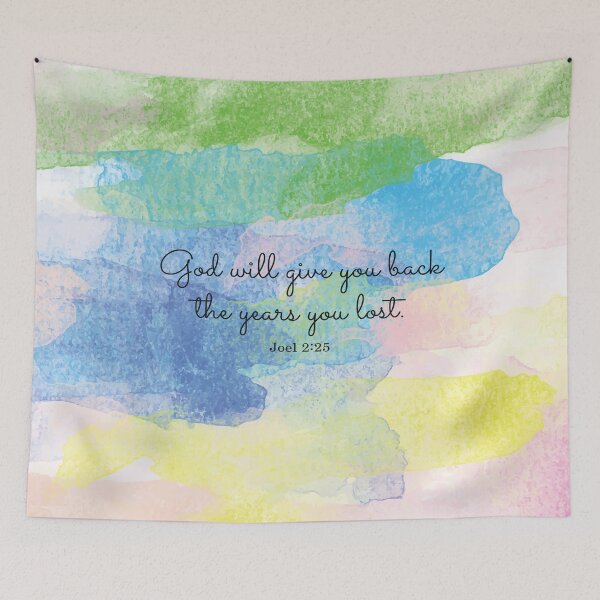 God will give you back
the years you lost.
Joel 2:25